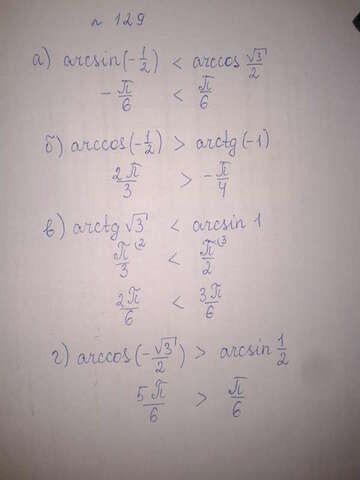 № 129
а) arcsin(-1/2) < arccos √3/2
-π/6 < π/6
б) arccos(-1/2) > arctg(-1)
2π/3 > -π/4
в) arctg √3 < arcsin 1
π/3 (2 < π/2 (3
2π/6 < 3π/6
г) arccos(-√3/2) > arcsin 1/2
5π/6 > π/6